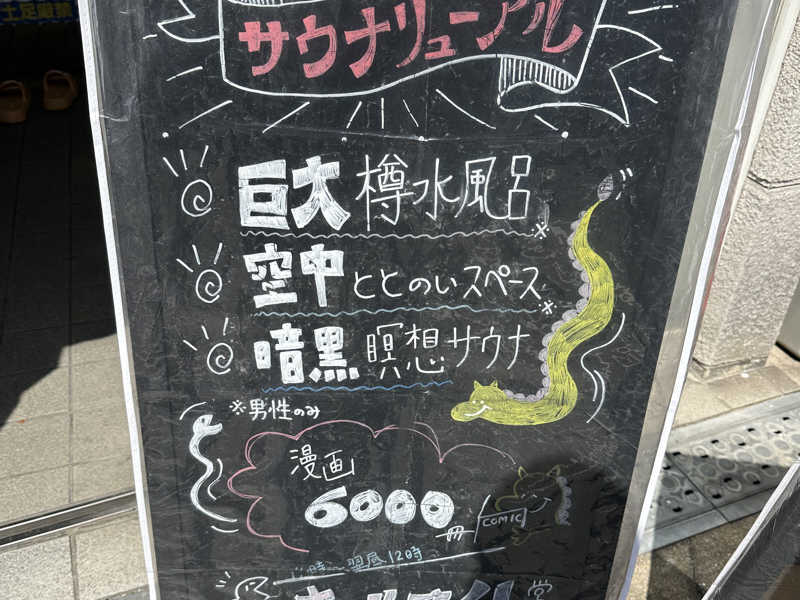 土足厳禁
サウナリニューアル
巨大 樽水風呂
空中 ととのいスペース
暗黒 瞑想サウナ
※男性のみ
漫画
6000冊
COMIC
翌昼12時